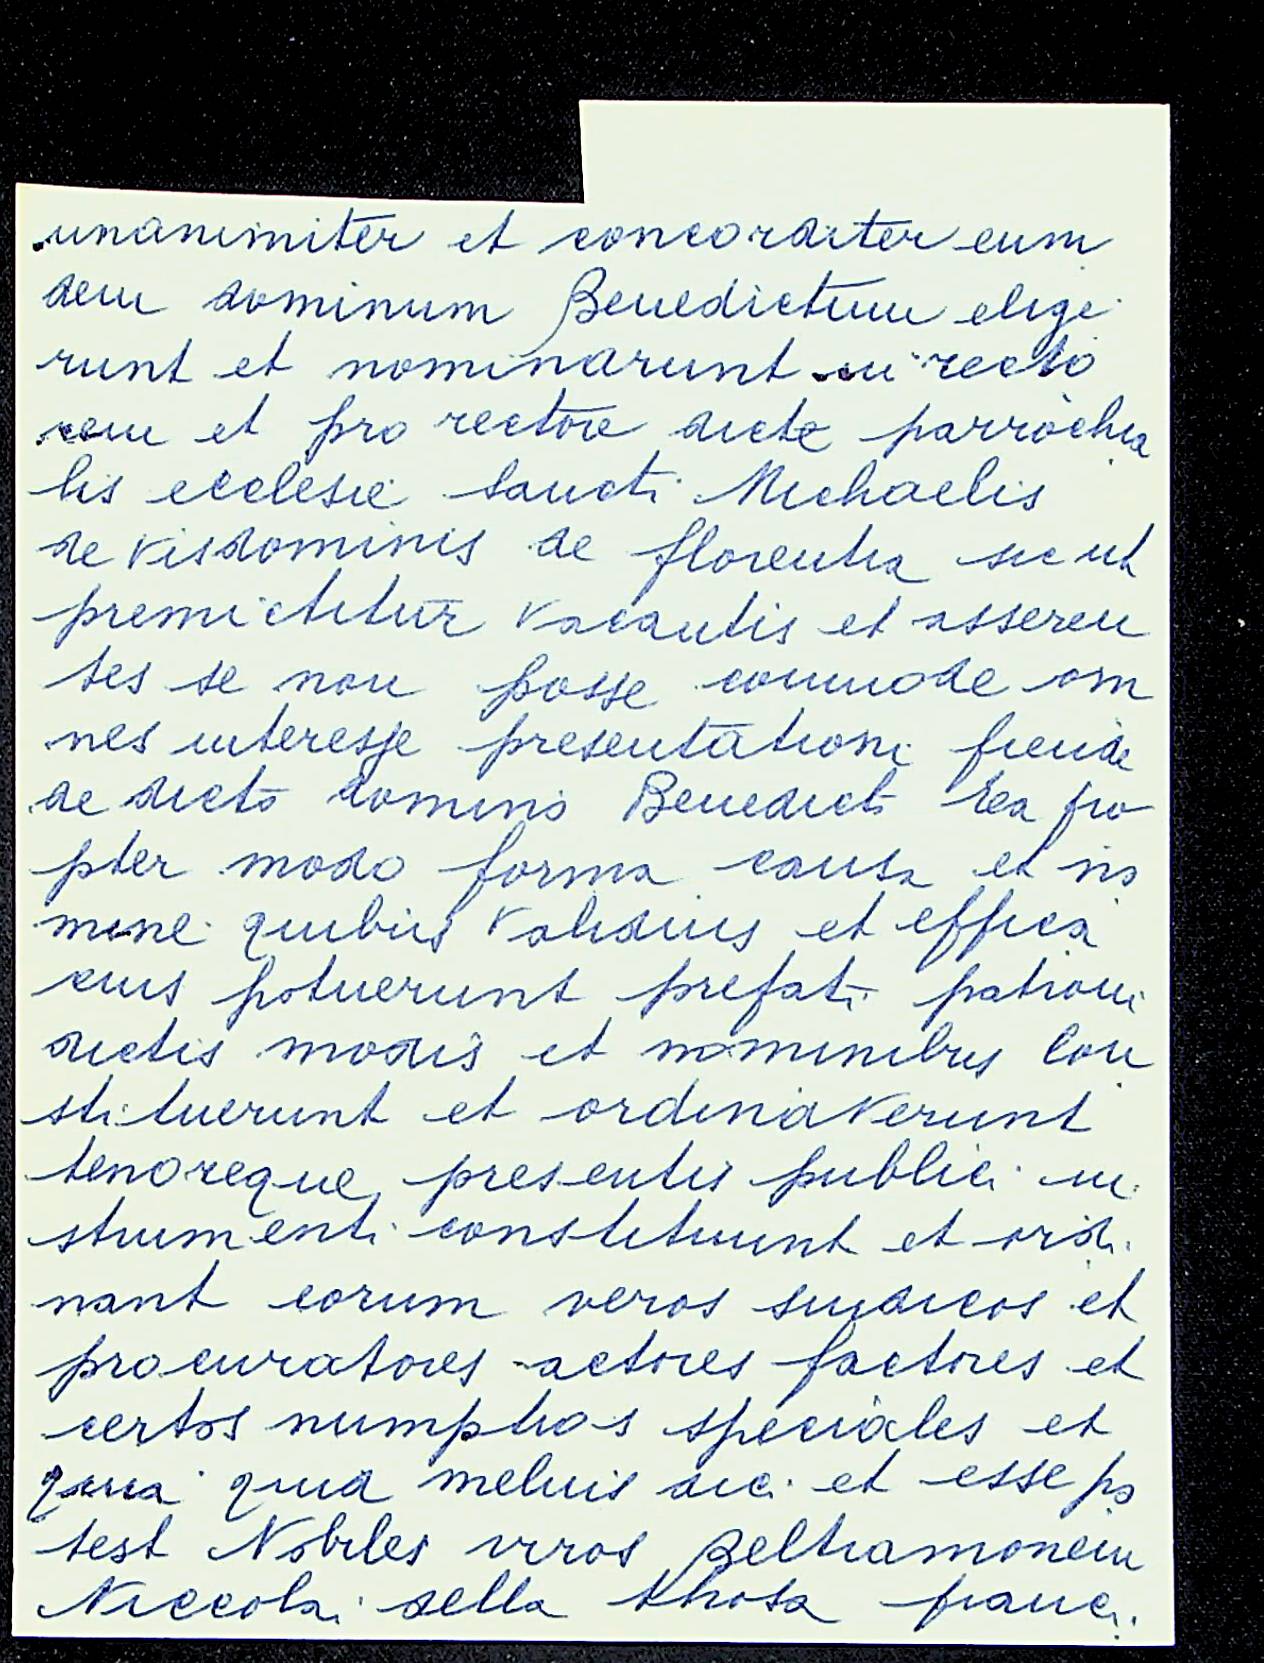 unanimiter et concorditer eum
dem dominum Benedictum elige
runt et nominarunt in recto
rem et pro rectore dicte parrochia
lis ecclesie Sancti Michaelis
de Visdominis de florentia sic ut
premictitur vacantis et asseren
tes se non posse commode om
nes interesse presentationi fiende
de dicto domino Benedicto Ea pro
pter modo forma causa et no
mine quibus validius et effica
cius potuerunt prefati patroni
dictis modis et nominibus Con
stituerunt et ordinaverunt
tenoreque presentis publici in
strumenti constituunt et ordi
nant eorum veros sindicos et
procuratores actores factores et
certos numptios speciales et
quia quid melius dici et esse po
test Nobiles viros Beltramonem
Niccolai della thosa franci